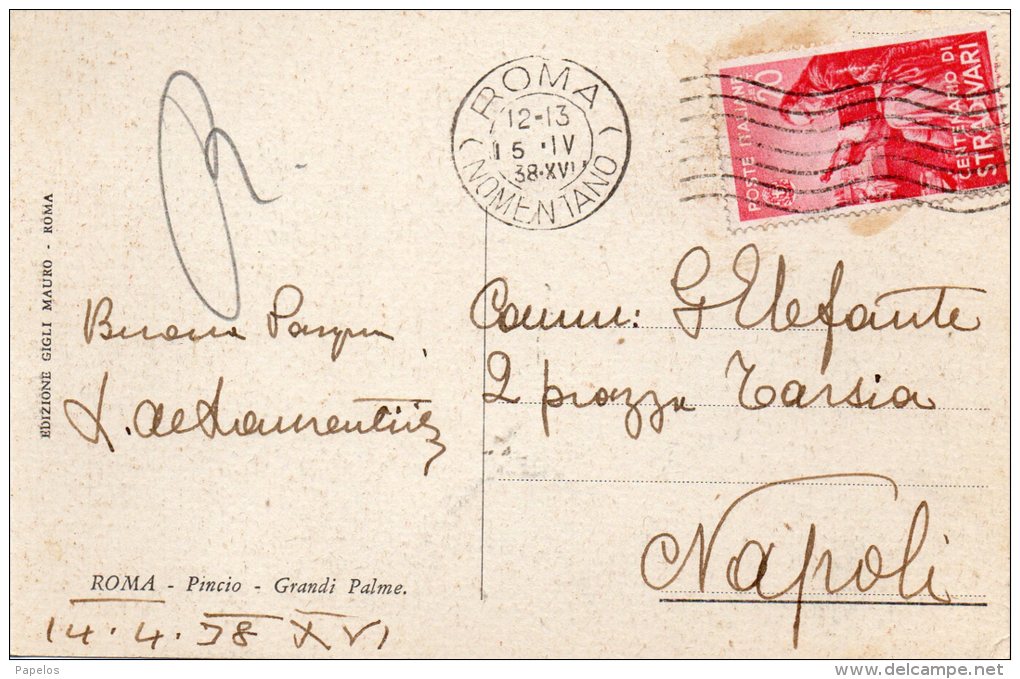 EDIZIONE GIGLI MAURO - ROMA
ROMA
12-13
15 · IV
38·XVI
NOMENTANO
POSTE ITALIANE
CENTENARIO DI
STRADIVARI
Buona Pasqua
Comm: G Elefante
2 piazza Tarsia
Napoli
ROMA - Pincio - Grandi Palme.
14·4·38 XVI
Papelos
www.delcampe.net